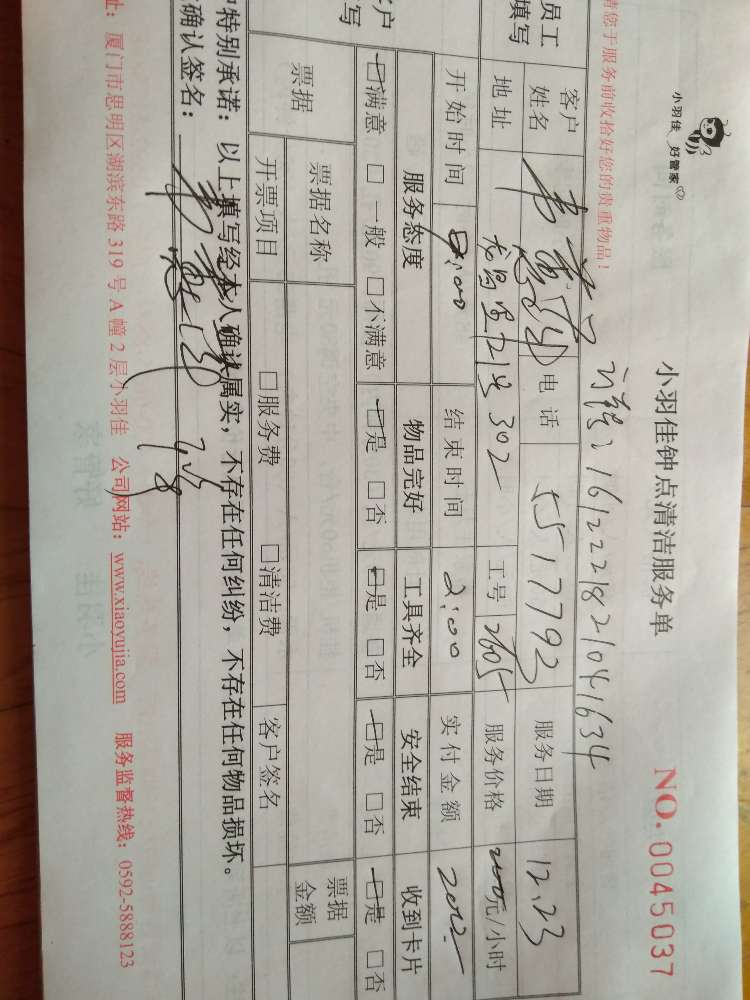 小羽佳 好管家
小羽佳钟点清洁服务单
NO. 0045037
请您于服务前收拾好您的贵重物品!
1612221821041634
员工填写
客户姓名 电话 5517792 服务日期 12.23
地址 21号302 工号 2605 服务价格 元/小时
开始时间 结束时间 2:00 实付金额
客户填写
服务态度 物品完好 工具齐全 安全结束 收到卡片
☑满意 □一般 □不满意 ☑是 □否 ☑是 □否 ☑是 □否 ☑是 □否
票据 票据名称 票据金额
开票项目 □服务费 □清洁费 客户签名
户特别承诺:以上填写经本人确认属实,不存在任何纠纷,不存在任何物品损坏。
确认签名:
址:厦门市思明区湖滨东路319号A幢2层小羽佳 公司网站:www.xiaoyujia.com 服务监督热线:0592-5888123